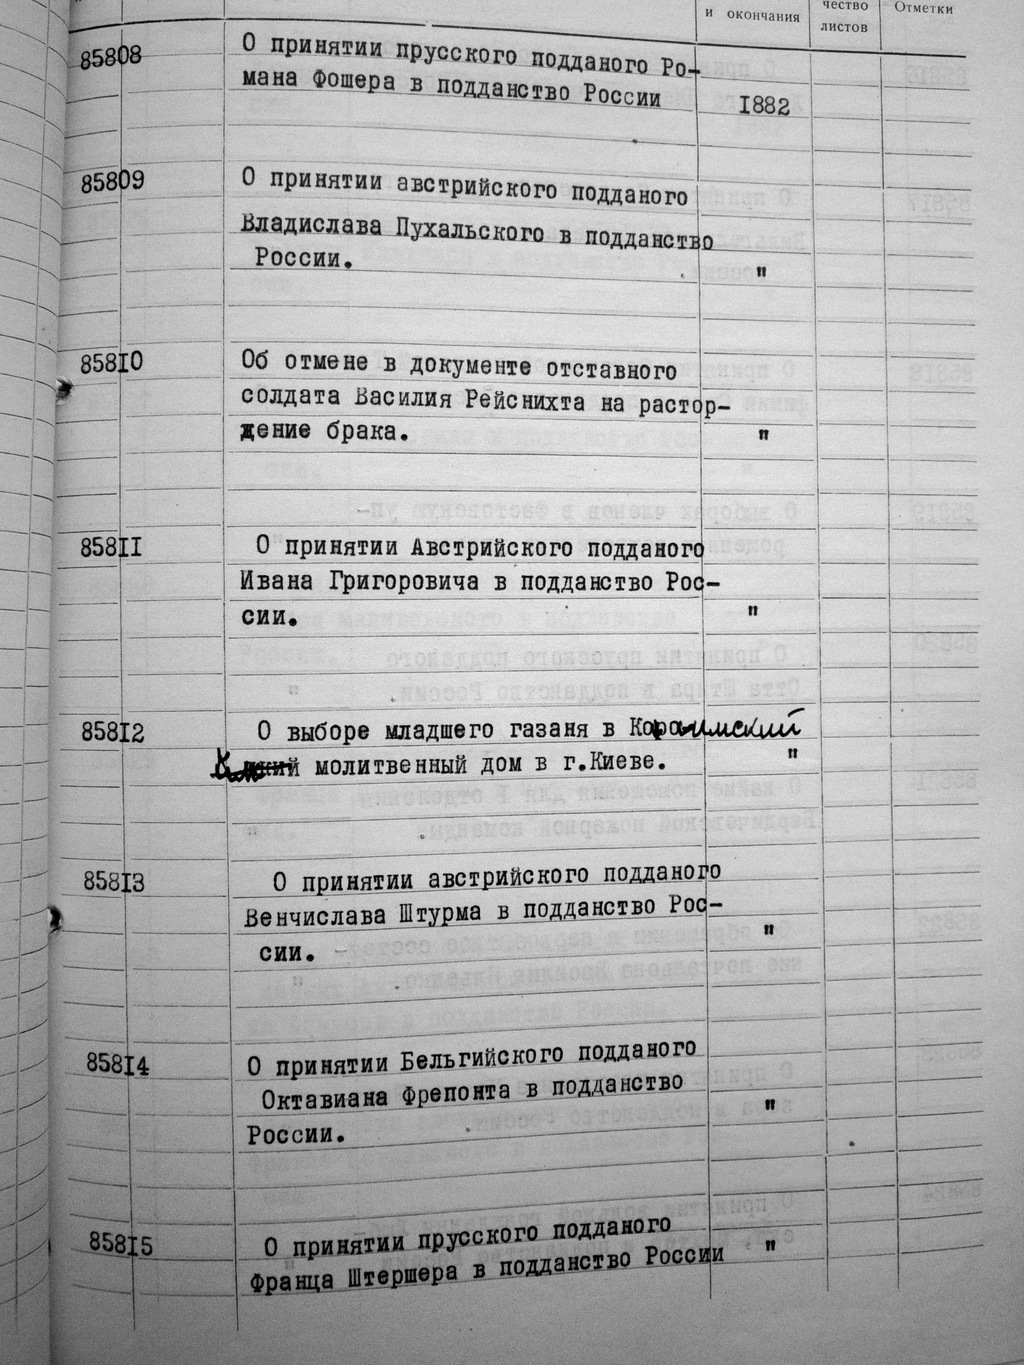 и окончания
чество
листов
Отметки
85808
О принятии прусского подданого Ро-
мана Фошера в подданство России
1882
85809
О принятии австрийского подданого
Владислава Пухальского в подданство
России.
"
85810
Об отмене в документе отставного
солдата Василия Рейснихта на растор-
жение брака.
"
85811
О принятии Австрийского подданого
Ивана Григоровича в подданство Рос-
сии.
"
85812
О выборе младшего газана в Караимский
молитвенный дом в г.Киеве.
"
85813
О принятии австрийского подданого
Венчислава Штурма в подданство Рос-
сии.
"
85814
О принятии Бельгийского подданого
Октавиана Фрепонта в подданство
России.
"
85815
О принятии прусского подданого
Франца Штершера в подданство России
"